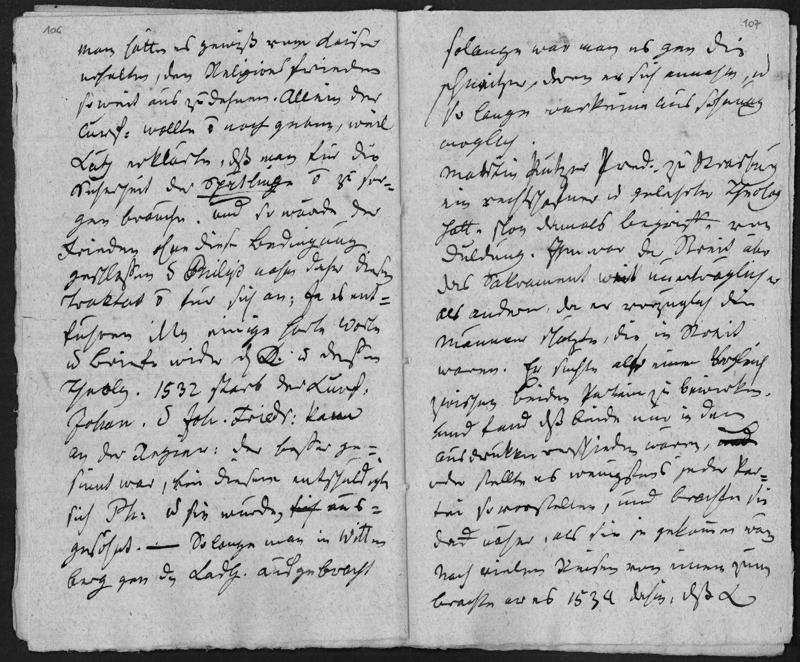 106
man hätte es gewiß vom Kaiser
erhalten, den Religionsfrieden
soweit auszudehnen. Allein der
Curf: wollte nachgeben, weil
Luth erklärte, daß man für die
Sicherheit der zu sor=
gen brauche. und so wurde der
Frieden ohne diese Bedingung
geschlossen Philip nahm daher diesen
Traktat für sich an; Ja es ent=
fuhren ihm einige harte Worte
Briefe wider
Theolog. 1532 starb der Curf.
Johan. Joh. Friedr: kam
an der Regier: der besser ge=
sinnt war, bei diesem entschuldigte
sich Ph: sie wurden aus=
gesöhnt. — Solange man in Witten
berg gen Zwingl. aufgebracht
107
solange war man es gen die
Schweitzer, deren er sich annahm,
so lange war keine Aussöhnung
möglich.
Martin Butzer Pred. zu Strasburg
ein rechtschafner gelehrter Theolog
hatte schon damals Begriffe von
Duldung. Ihm war der Streit über
das Sakrament weit unerträglicher
als andern, da er vorzüglich den
Männer schätzte, die in Streit
waren. Er suchte also einen Vergleich
zwischen beiden Partein zu bewirken,
und fand daß beide nur in den
Ausdrücken verschieden waren,
oder stellte es wenigstens jeder Par=
tei so vor, und brachte sie
näher, als sie je gekommen waren
Nach vielen Reisen von einem zum
brachte er es 1534 dahin, daß L